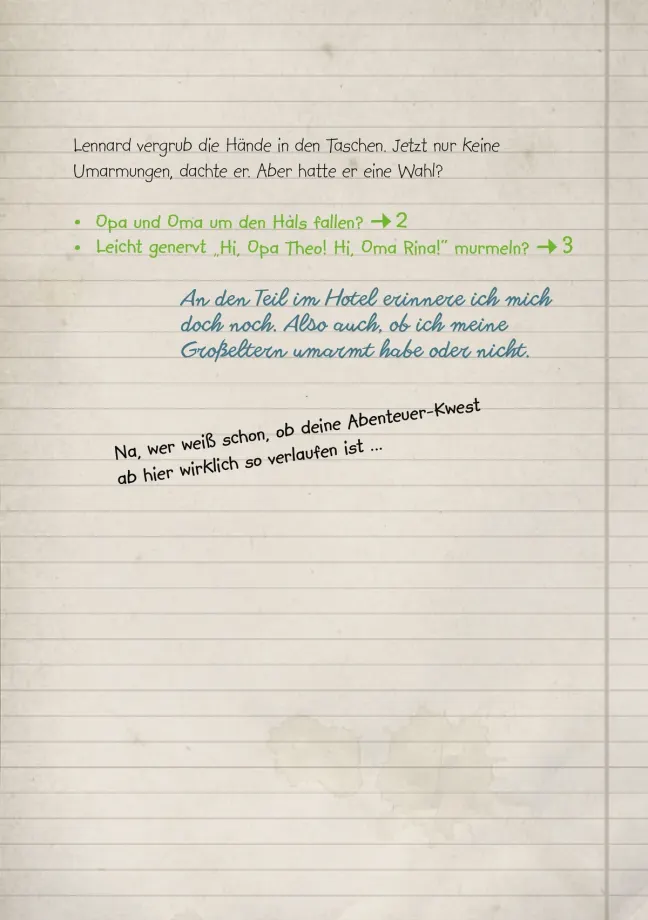 Lennard vergrub die Hände in den Taschen. Jetzt nur keine
Umarmungen, dachte er. Aber hatte er eine Wahl?
• Opa und Oma um den Hals fallen? → 2
• Leicht genervt „Hi, Opa Theo! Hi, Oma Rina!" murmeln? → 3
An den Teil im Hotel erinnere ich mich
doch noch. Also auch, ob ich meine
Großeltern umarmt habe oder nicht.
Na, wer weiß schon, ob deine Abenteuer-Kwest
ab hier wirklich so verlaufen ist ...